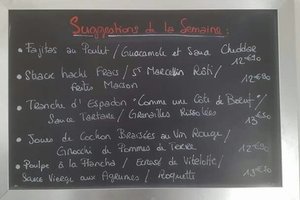 Suggestions de la Semaine :
• Fajitas au Poulet / Guacamole et Sauce Cheddar
12€90
• Steack haché Frais / St Marcellin Rôti /
Frites Maison
12€90
• Tranche d'Espadon "Comme une Côte de Boeuf" /
Sauce Tartare / Grenailles Rissolées
13€50
• Joues de Cochon Braisées au Vin Rouge /
Gnocchi de Pommes de Terre
12€90
• Poulpe à la Plancha / Ecrasé de Vitelotte /
Sauce Vierge aux Agrumes / Roquette